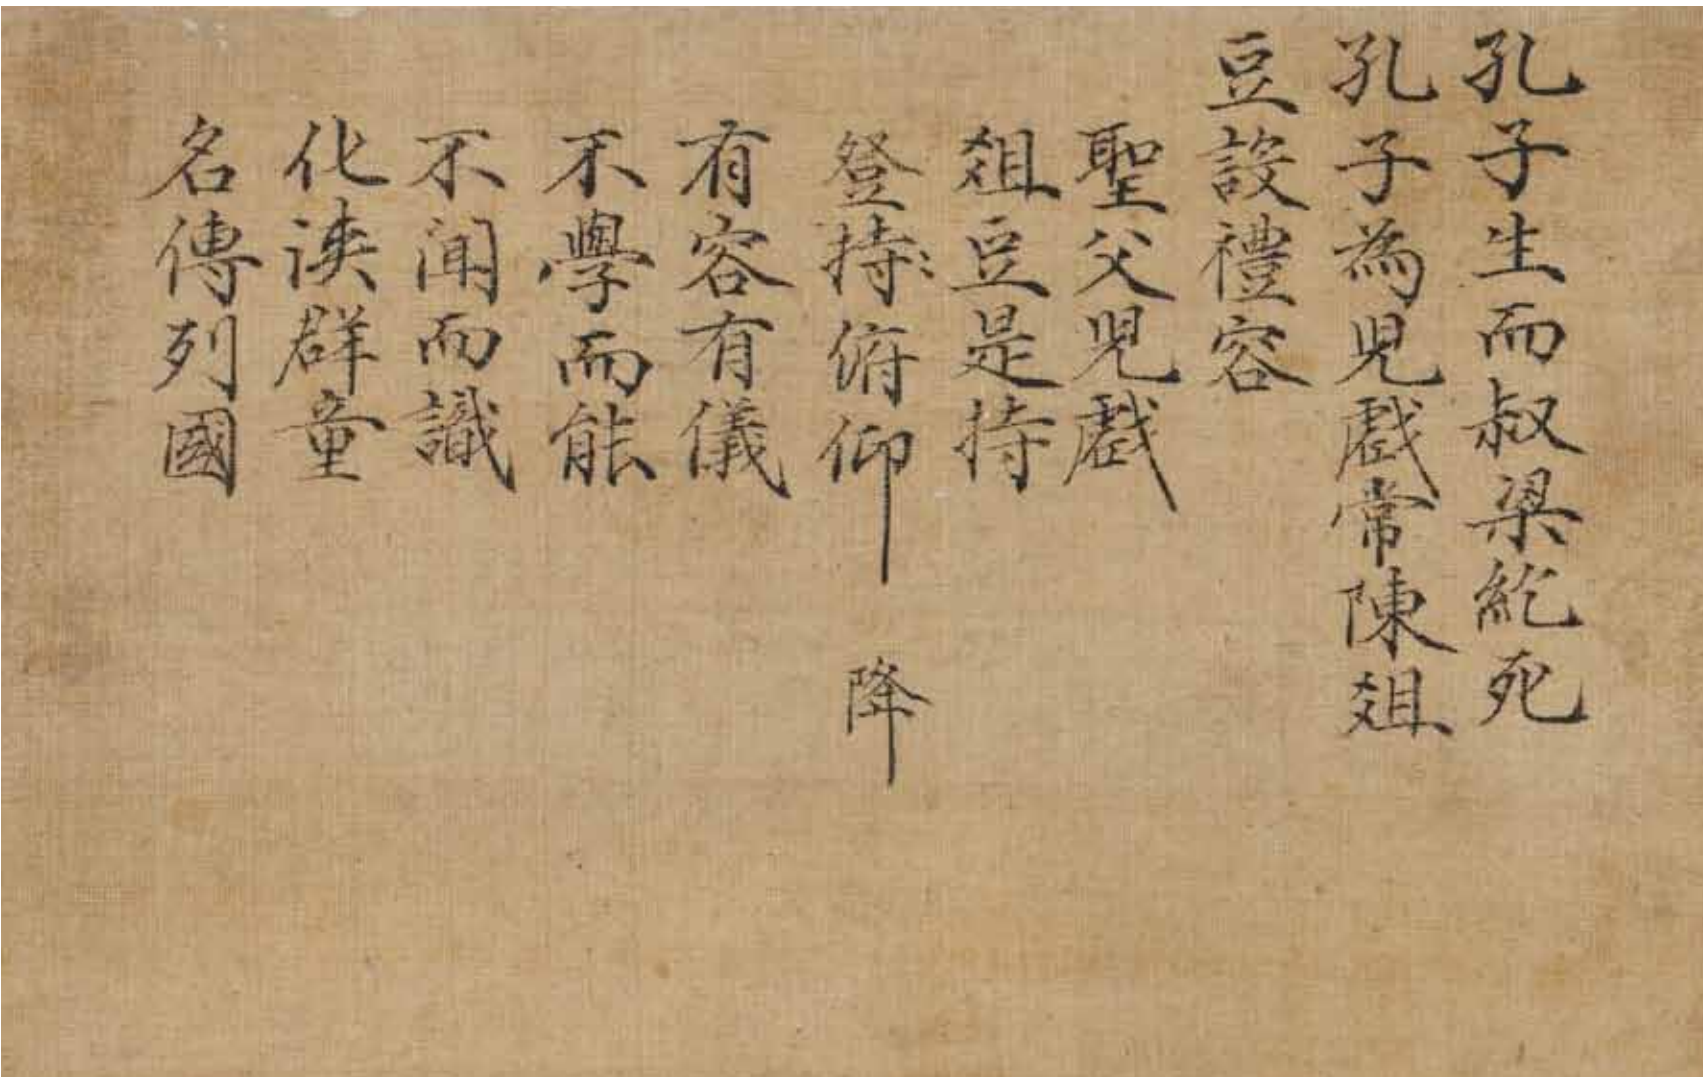 孔子生而叔梁紇死
孔子為児戲常陳俎
豆設禮容
聖父児戲
俎豆是持
登持俯仰 降
有容有儀
不學而能
不聞而識
化浹群童
名傳列國